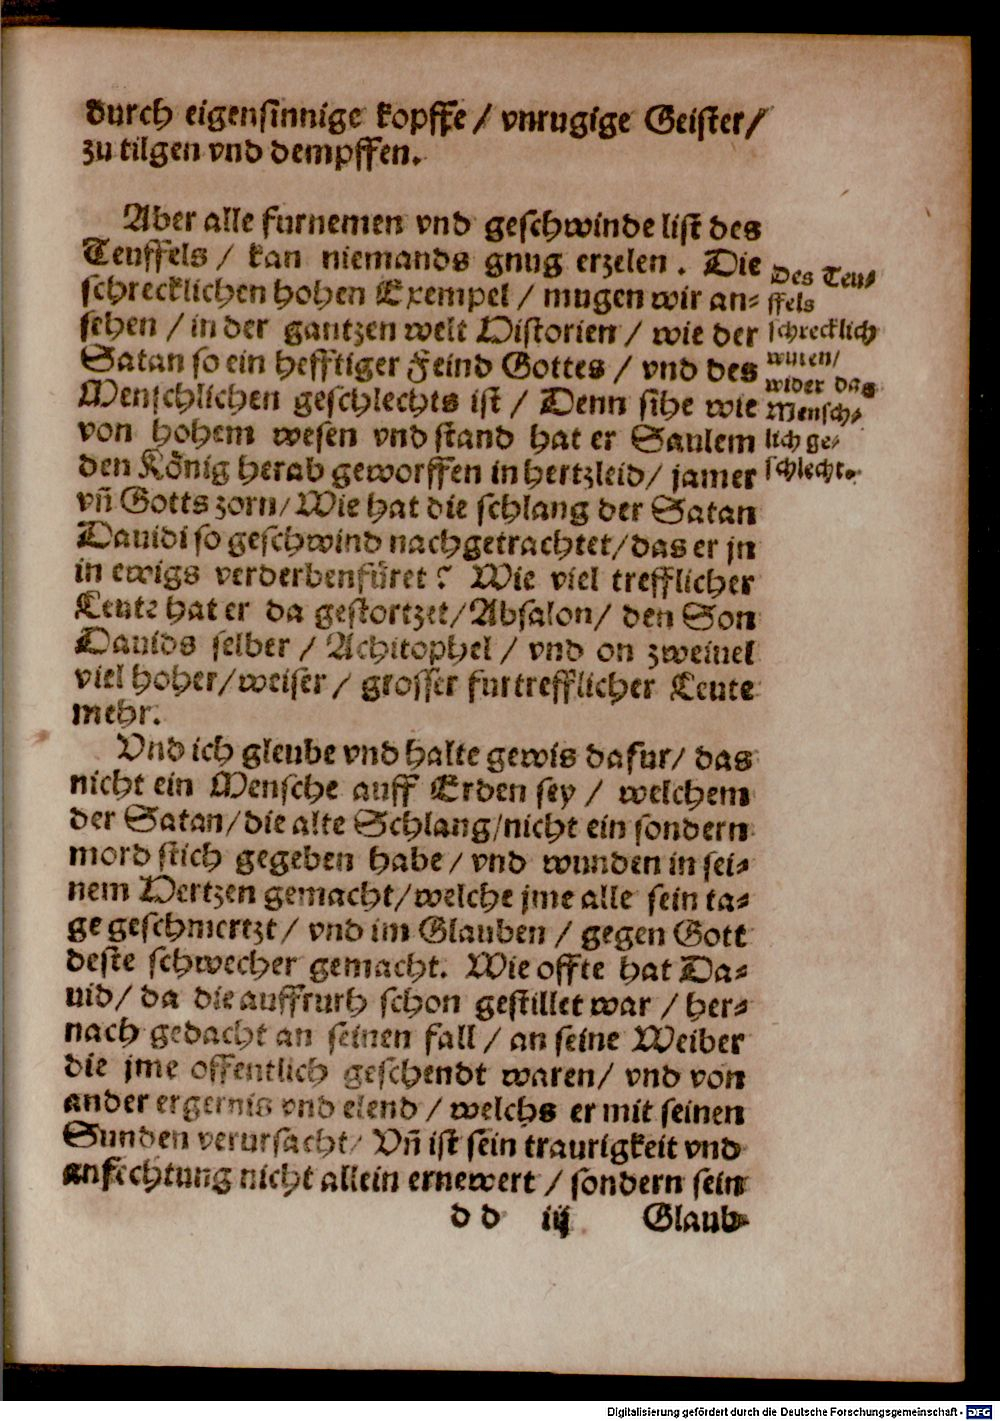 durch eigensinnige kopffe / vnrugige Geister /
zu tilgen vnd dempffen.
Aber alle furnemen vnd geschwinde list des
Teuffels / kan niemands gnug erzelen . Die
schrecklichen hohen Exempel / mugen wir an⸗
sehen / in der gantzen welt Historien / wie der
Satan so ein hefftiger Feind Gottes / vnd des
Menschlichen geschlechts ist / Denn sihe wie
von hohem wesen vnd stand hat er Saulem
den König herab geworffen in hertzleid / jamer
vñ Gotts zorn / Wie hat die schlang der Satan
Dauidi so geschwind nachgetrachtet / das er jn
in ewigs verderben füret ? Wie viel trefflicher
Leute hat er da gestortzet / Absalon / den Son
Dauids selber / Achitophel / vnd on zweiuel
viel hoher / weiser / grosser furtrefflicher Leute
mehr.
Des Teu⸗
ffels
schrecklich
wuten /
wider das
Mensch⸗
lich ge⸗
schlecht.
Vnd ich gleube vnd halte gewis dafur / das
nicht ein Mensche auff Erden sey / welchem
der Satan / die alte Schlang / nicht ein sondern
mord stich gegeben habe / vnd wunden in sei⸗
nem Hertzen gemacht / welche jme alle sein ta⸗
ge geschmertzt / vnd im Glauben / gegen Gott
deste schwecher gemacht. Wie offte hat Da⸗
uid / da die auffrurh schon gestillet war / her⸗
nach gedacht an seinen fall / an seine Weiber
die jme offentlich geschendt waren / vnd von
ander ergernis vnd elend / welchs er mit seinen
Sunden verursacht / Vñ ist sein traurigkeit vnd
anfechtung nicht allein ernewert / sondern sein
d d iij Glaub⸗
Digitalisierung gefördert durch die Deutsche Forschungsgemeinschaft - DFG